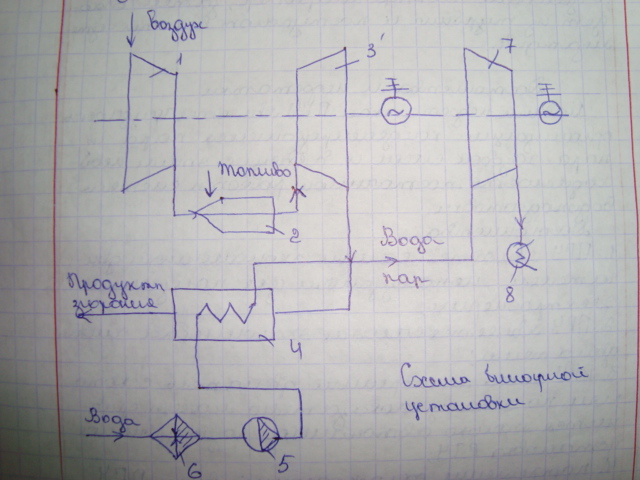 Воздух
1
3'
7
Топливо
2
Вода
пар
8
Продукты
згорания
4
Схема бинарной
установки
Вода
6
5